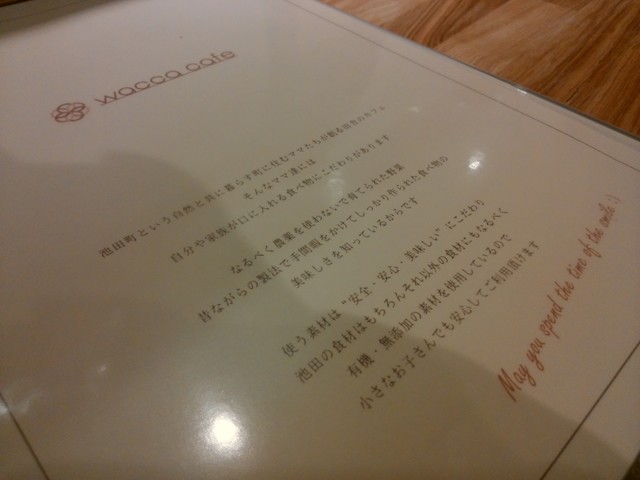 wacca cafe
池田町という自然と共に暮らす町に住むママたちが創る田舎のカフェ
そんなママ達には
自分や家族が口に入れる食べ物にこだわりがあります
なるべく農薬を使わないで育てられた野菜
昔ながらの製法で手間暇をかけてしっかり作られた食べ物の
美味しさを知っているからです
使う素材は“安全・安心・美味しい”にこだわり
池田の食材はもちろんそれ以外の食材にもなるべく
有機・無添加の素材を使用しているので
小さなお子さんでも安心してご利用頂けます
May you spend the time of the smile :)